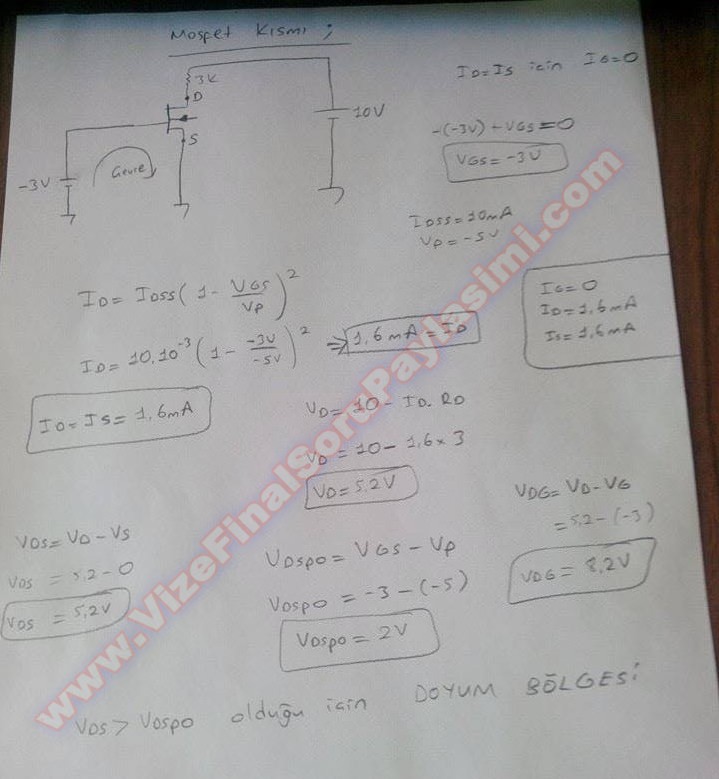 Mosfet Kısmı ;
3K
D
S
10V
-3V
Çevre
ID=IS için IG=0
-(-3V)+VGS=0
VGS=-3V
IDSS=10mA
VP=-5V
ID=IDSS(1-VGS/VP)²
ID=10.10⁻³(1- -3V/-5V)² ⇒ 1,6mA=ID
IG=0
ID=1,6mA
IS=1,6mA
ID=IS=1,6mA
VD=10-ID.RD
VD=10-1,6×3
VD=5,2V
VDG=VD-VG
=5,2-(-3)
VDG=8,2V
VDS=VD-VS
VDS=5,2-0
VDS=5,2V
VDSPO=VGS-VP
VDSPO=-3-(-5)
VDSPO=2V
VDS>VDSPO olduğu için DOYUM BÖLGESİ
www.VizeFinalSoruPaylasimi.com